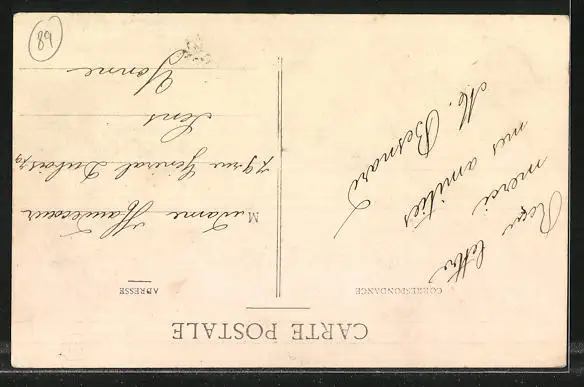 CARTE POSTALE
CORRESPONDANCE
ADRESSE
Reçu lettre
merci
mes amitiés
M. Besnard
Madame
79 rue Général Dubois 79
Sens
Yonne
89